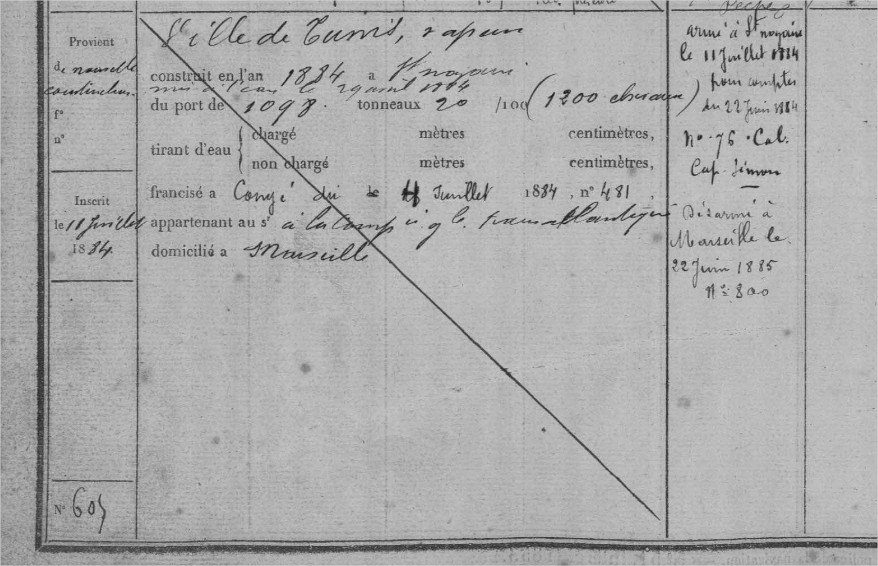 Provient
de nouvelle
construction.
f°
n°
Inscrit
le 11 Juillet
1884.
N° 605
Ville de Tunis, vapeur
construit en l'an 1884 a St nazaire
mis à l'eau le 29 avril 1884
du port de 1098. tonneaux 20 /100 (1200 chevaux)
tirant d'eau
chargé mètres centimètres,
non chargé mètres centimètres,
francisé a Congé du Juillet 1884, n° 481,
appartenant au sr à la Comp ie gle. transatlantique
domicilié a Marseille
armé à St nazaire
le 11 Juillet 1884
pour compter
du 22 Juin 1884
N° 76. Cal.
Cap. Simon
Désarmé à
Marseille le
22 Juin 1885
N° 800